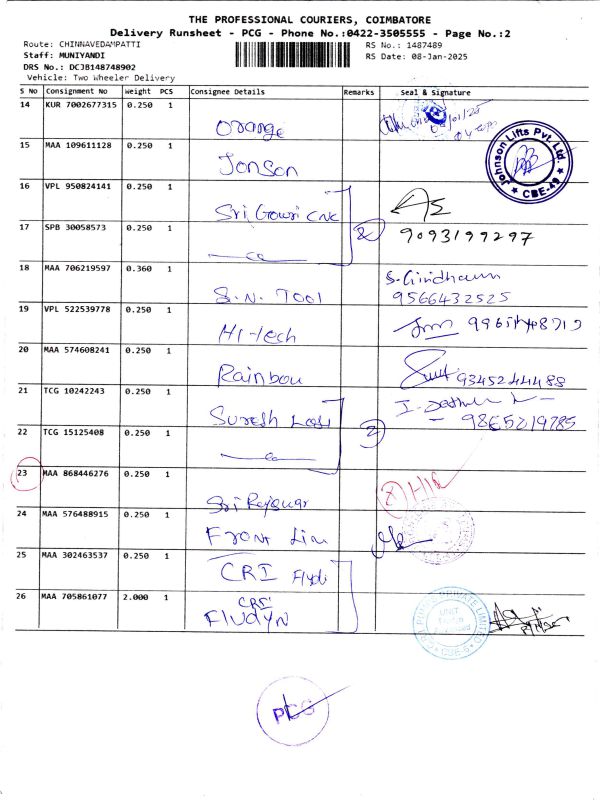 THE PROFESSIONAL COURIERS, COIMBATORE
Delivery Runsheet - PCG - Phone No.:0422-3505555 - Page No.:2
Route: CHINNAVEDAMPATTI
RS No.: 1487489
Staff: MUNIYANDI
RS Date: 08-Jan-2025
DRS No.: DCJB148748902
Vehicle: Two Wheeler Delivery
S No Consignment No Weight PCS Consignee Details Remarks Seal & Signature
14 KUR 7002677315 0.250 1
Orange
15 MAA 109611128 0.250 1
Jonson
Johnson Lifts Pvt. Ltd. ★ CBE-49 ★
16 VPL 950824141 0.250 1
Sri Gowri CNC
17 SPB 30058573 0.250 1
2
9093199297
18 MAA 706219597 0.360 1
S.N. Tool
9566432525
19 VPL 522539778 0.250 1
Hi-tech
20 MAA 574608241 0.250 1
Rainbow
9345244488
21 TCG 10242243 0.250 1
Suresh
22 TCG 15125408 0.250 1
2
23 MAA 868446276 0.250 1
Sri Rajswar
24 MAA 576488915 0.250 1
Front Lin
25 MAA 302463537 0.250 1
CRI
26 MAA 705861077 2.000 1
CRI
Fludyn
PRIVATE LIMITED
UNIT
CBE-6
PCG